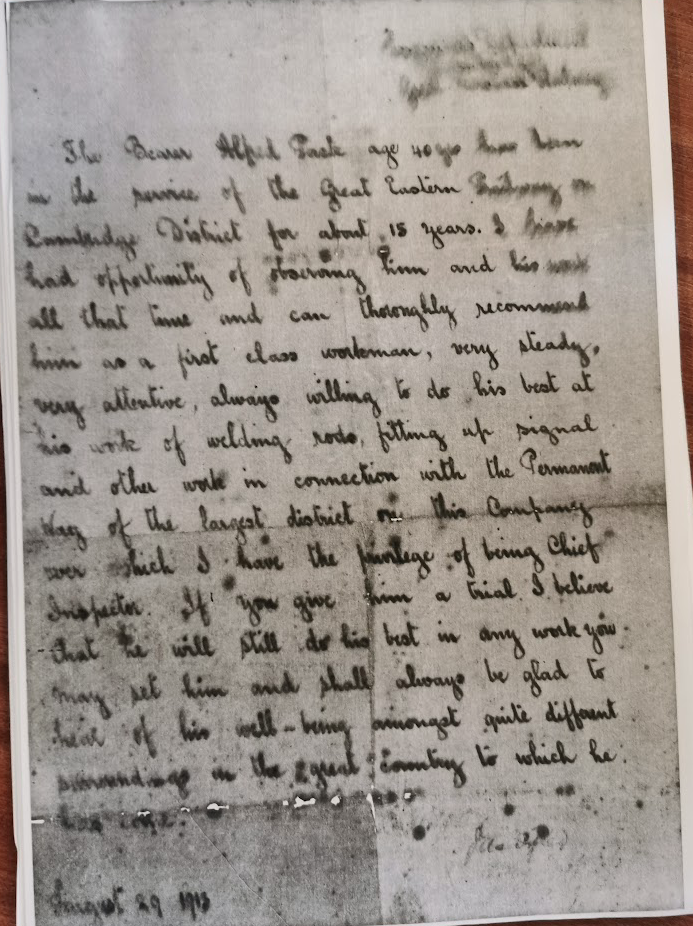 The Bearer Alfred age 40 yrs has been
in the service of the Great Eastern Railway on
Cambridge District for about 15 years. I have
had opportunity of observing him and his work
all that time and can thoroughly recommend
him as a first class workman, very steady,
very attentive, always willing to do his best at
his work of welding rods, fitting up signal
and other work in connection with the Permanent
Way of the largest district on this Company
over which I have the privilege of being Chief
Inspector. If you give him a trial I believe
that he will still do his best in any work you
may set him and shall always be glad to
hear of his well-being amongst quite different
surroundings in the great Country to which he
has come.
August 29 1913